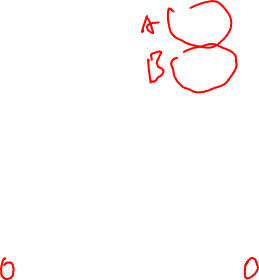 A
B
0 0